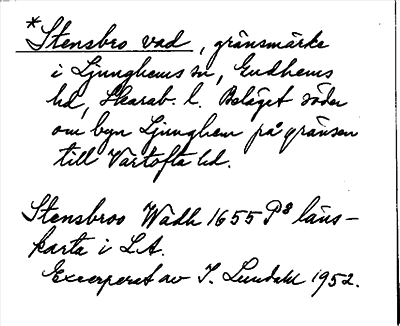 *Stensbro vad, gränsmärke
i Ljunghems sn, Gudhems
hd, Skarab. l. Beläget söder
om byn Ljunghem på gränsen
till Vartofta hd.
Stensbroo Wadh 1655 P8 läns-
karta i LA.
Excerperat av I. Lundahl 1952.